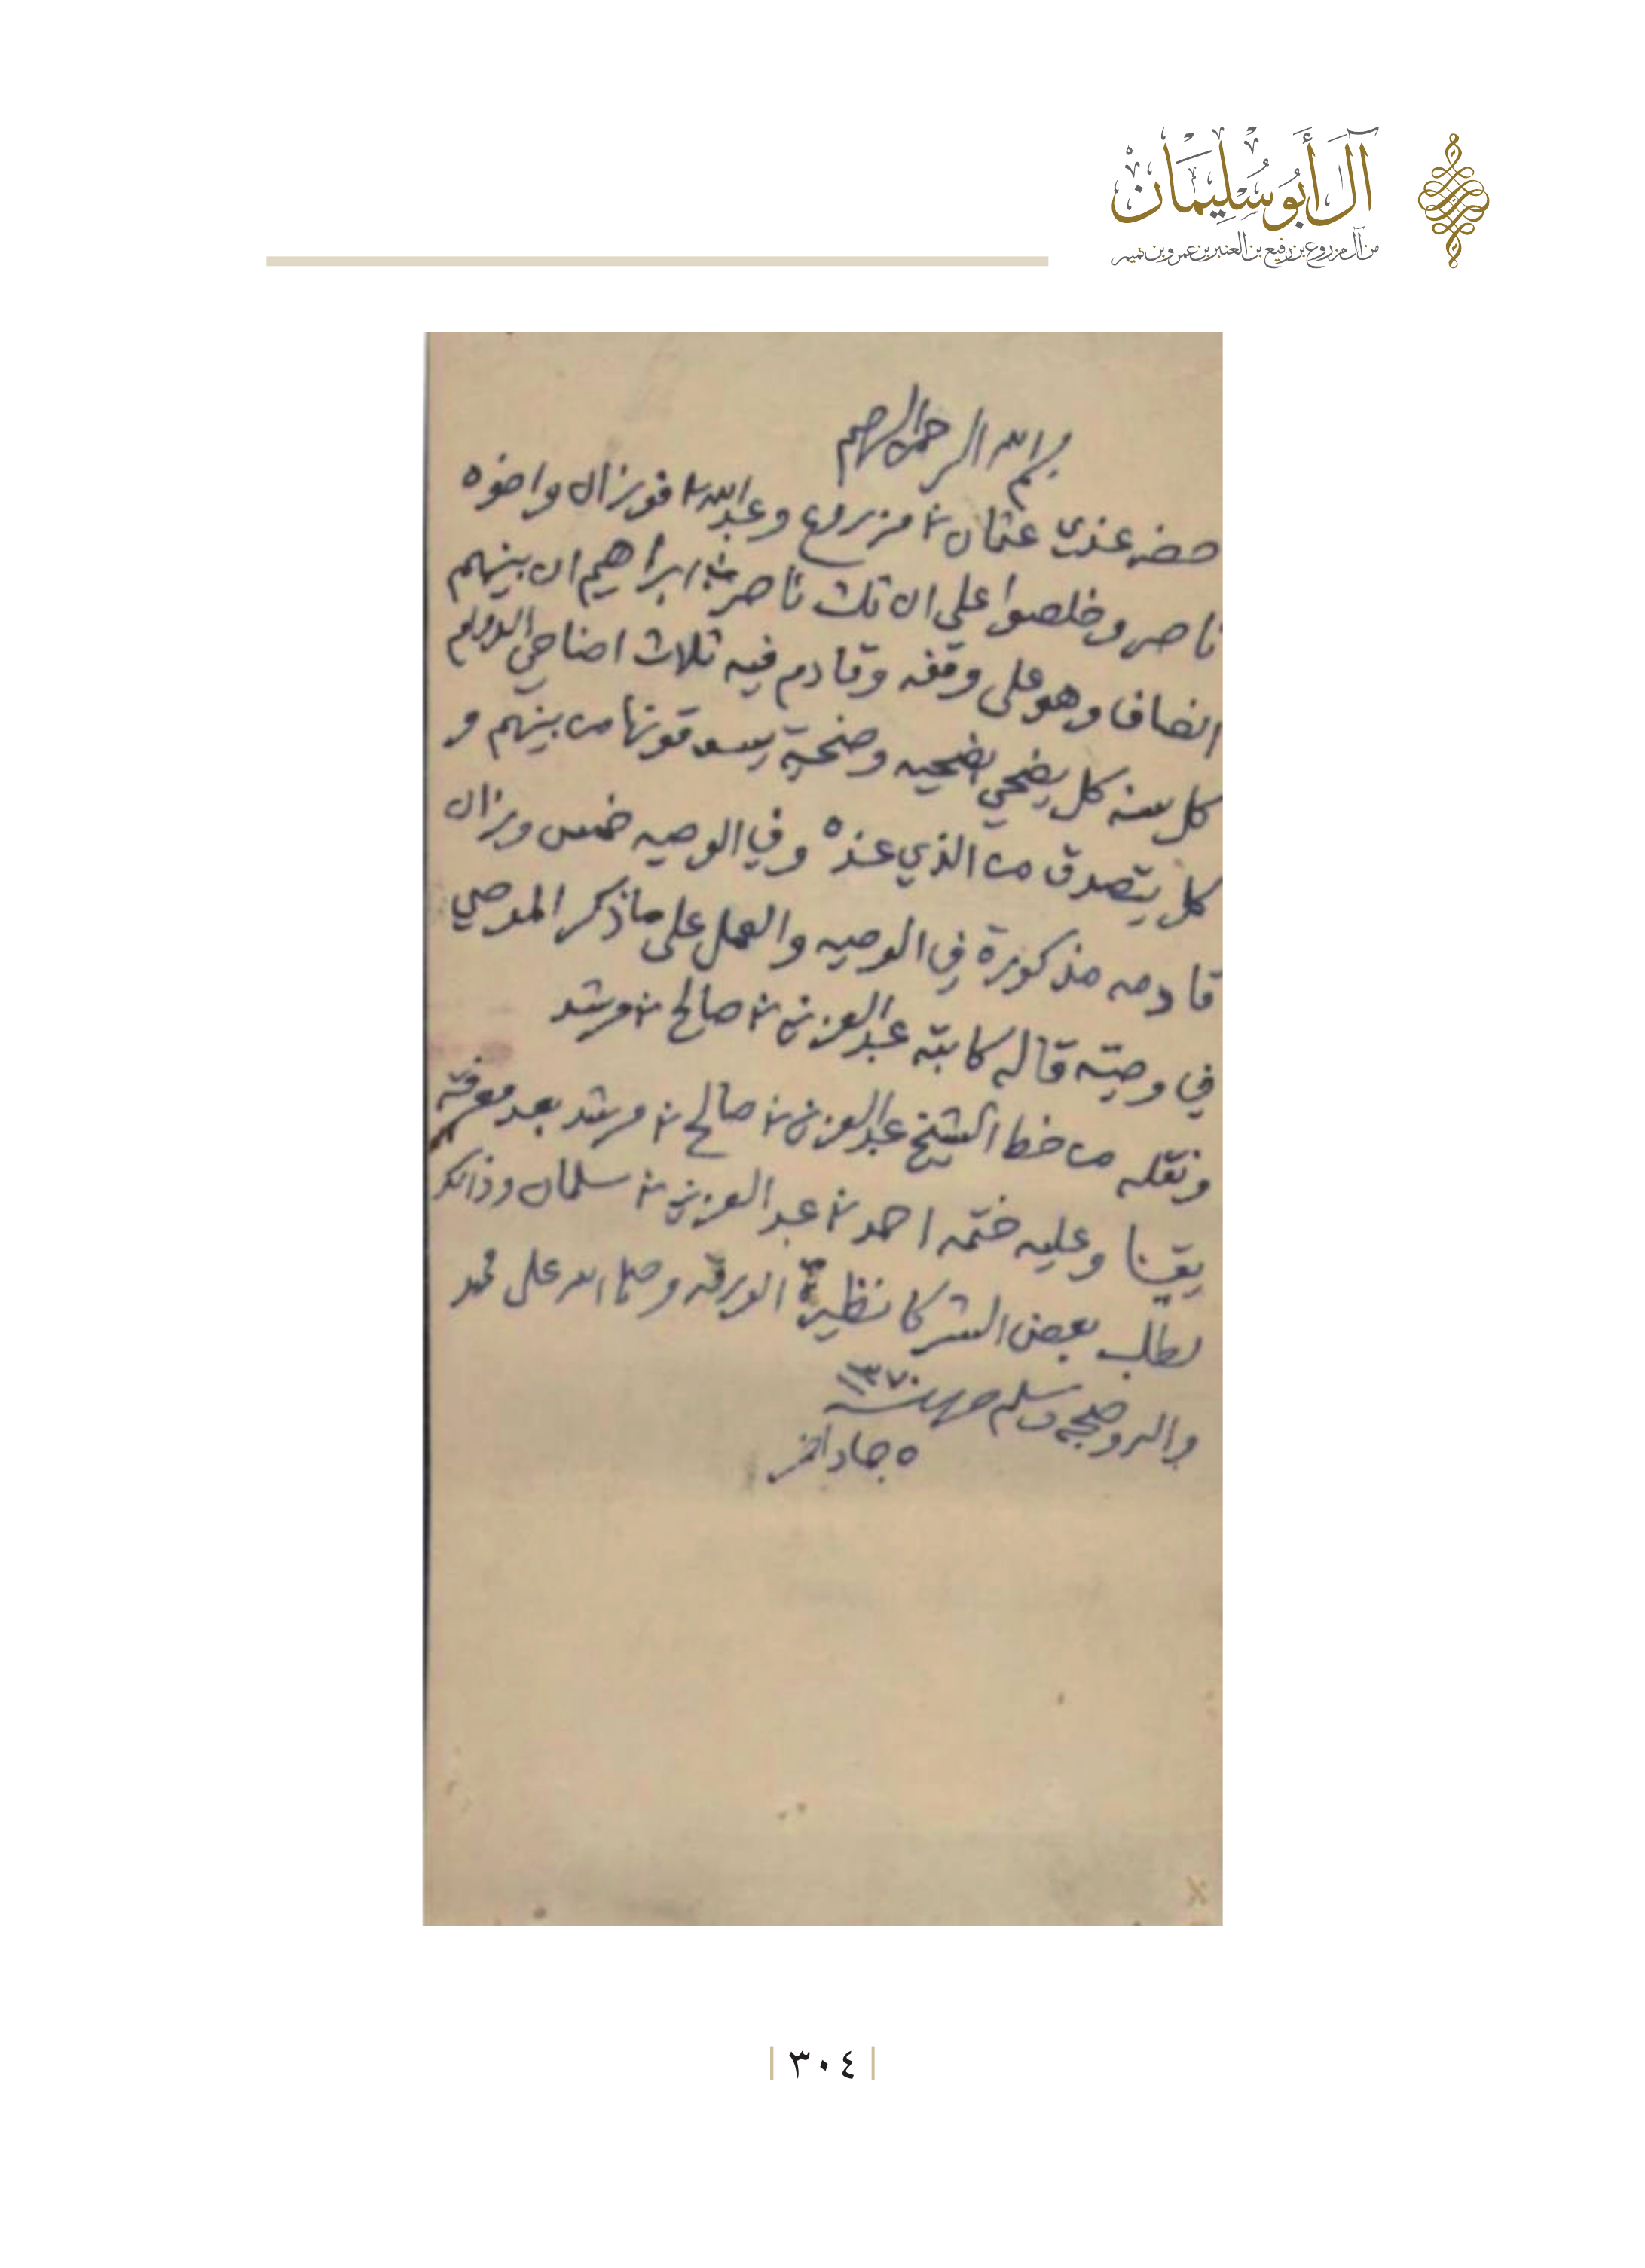 آل أبو سليمان
من آل مزروع بن رفيع بن العنبر بن عمرو بن تميم
بسم الله الرحمن الرحيم
حضر عندي عثمان بن مزروع وعبدالله فوزان واخوه
ناصر وخلصوا على ان ثلث ناصر بن ابراهيم ان بينهم
انصاف وهو على وقفه وقادم فيه ثلاث اضاحي الدوام
كل سنه كل يضحي اضحيه وضحية يسوقونها من بينهم و
كل يتصدق من الذي عنده وفي الوصيه خمس وزان
قادمه مذكورة في الوصيه والعمل على ما ذكر الموصي
في وصيته قاله كاتبه عبدالعزيز بن صالح بن مرشد
ونقله من خط الشيخ عبدالعزيز بن صالح بن مرشد بعد معرفته
يقينا وعليه ختمه احمد بن عبد العزيز بن سلمان وذالك
بطلب بعض الشركا نظيرة الورقه وصلى الله على محمد
واله وصحبه وسلم سنة ١٣٧٠
٥ جماد اخر
٣٠٤